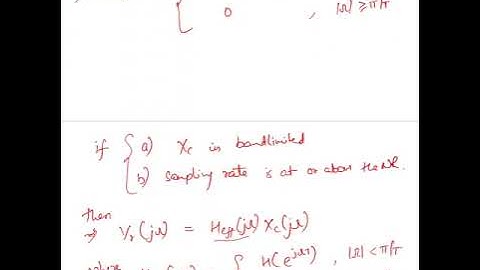 0 , |Ω| ≥ π/T
if { a) Xc is bandlimited
b) sampling rate is at or above the NR.
Then
⇒ Yr(jΩ) = Heff(jΩ) Xc(jΩ)
where { H(e^jΩT) , |Ω| < π/T